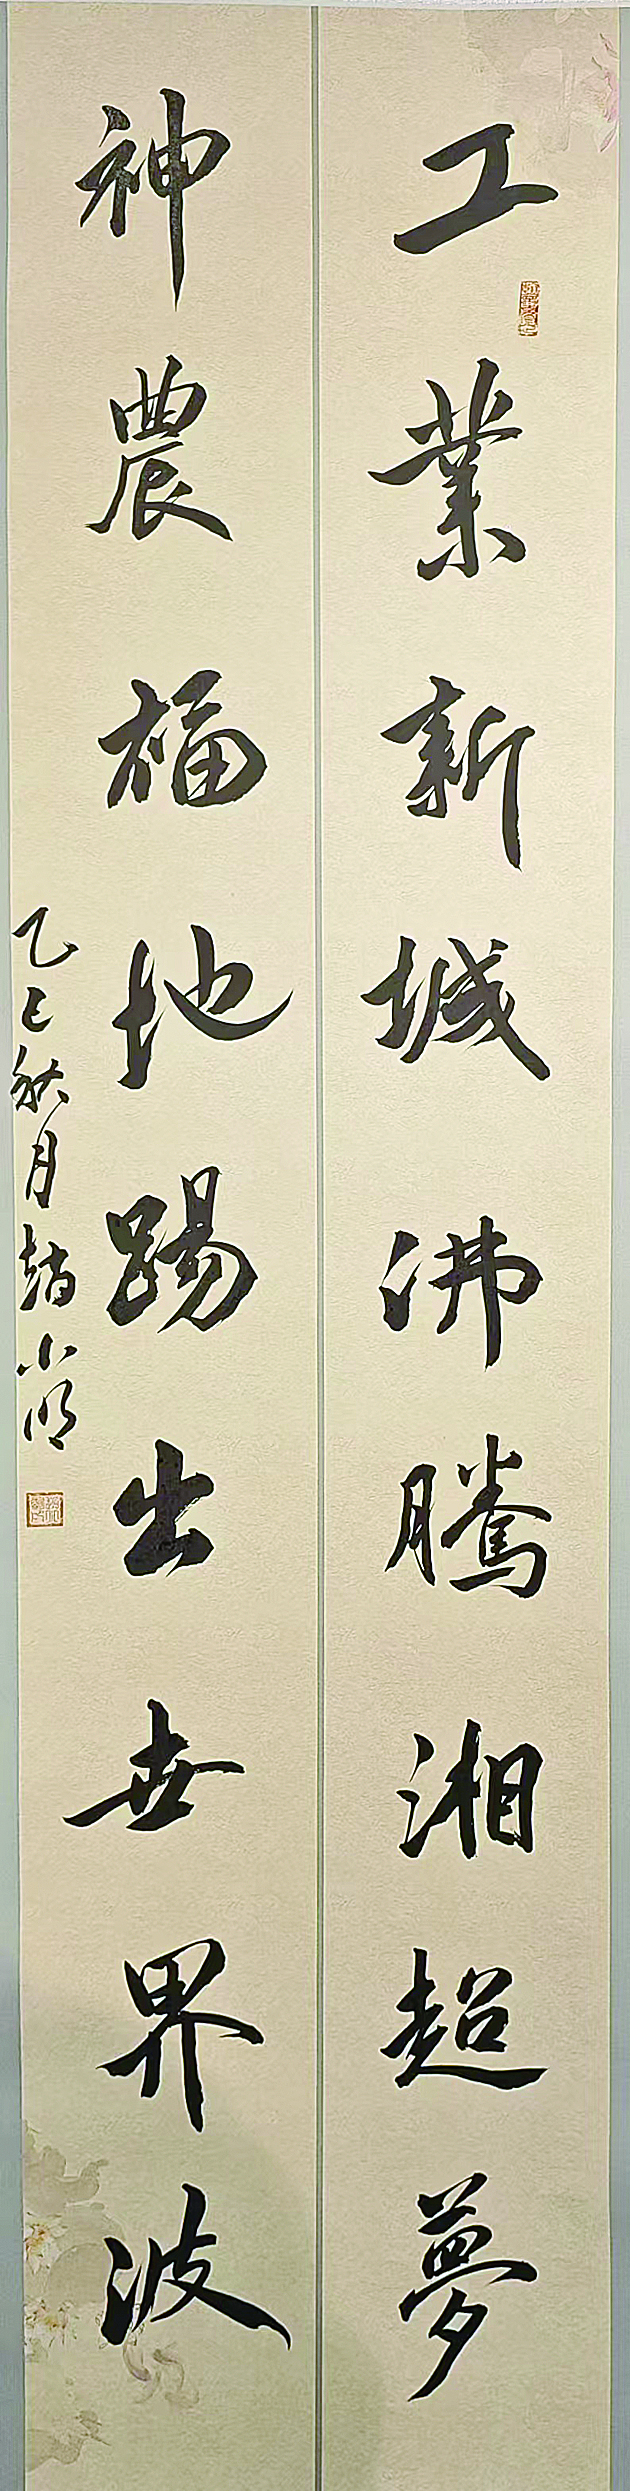 工業新城沸騰湘超夢
神農福地踢出世界波
乙巳秋月 趙小明